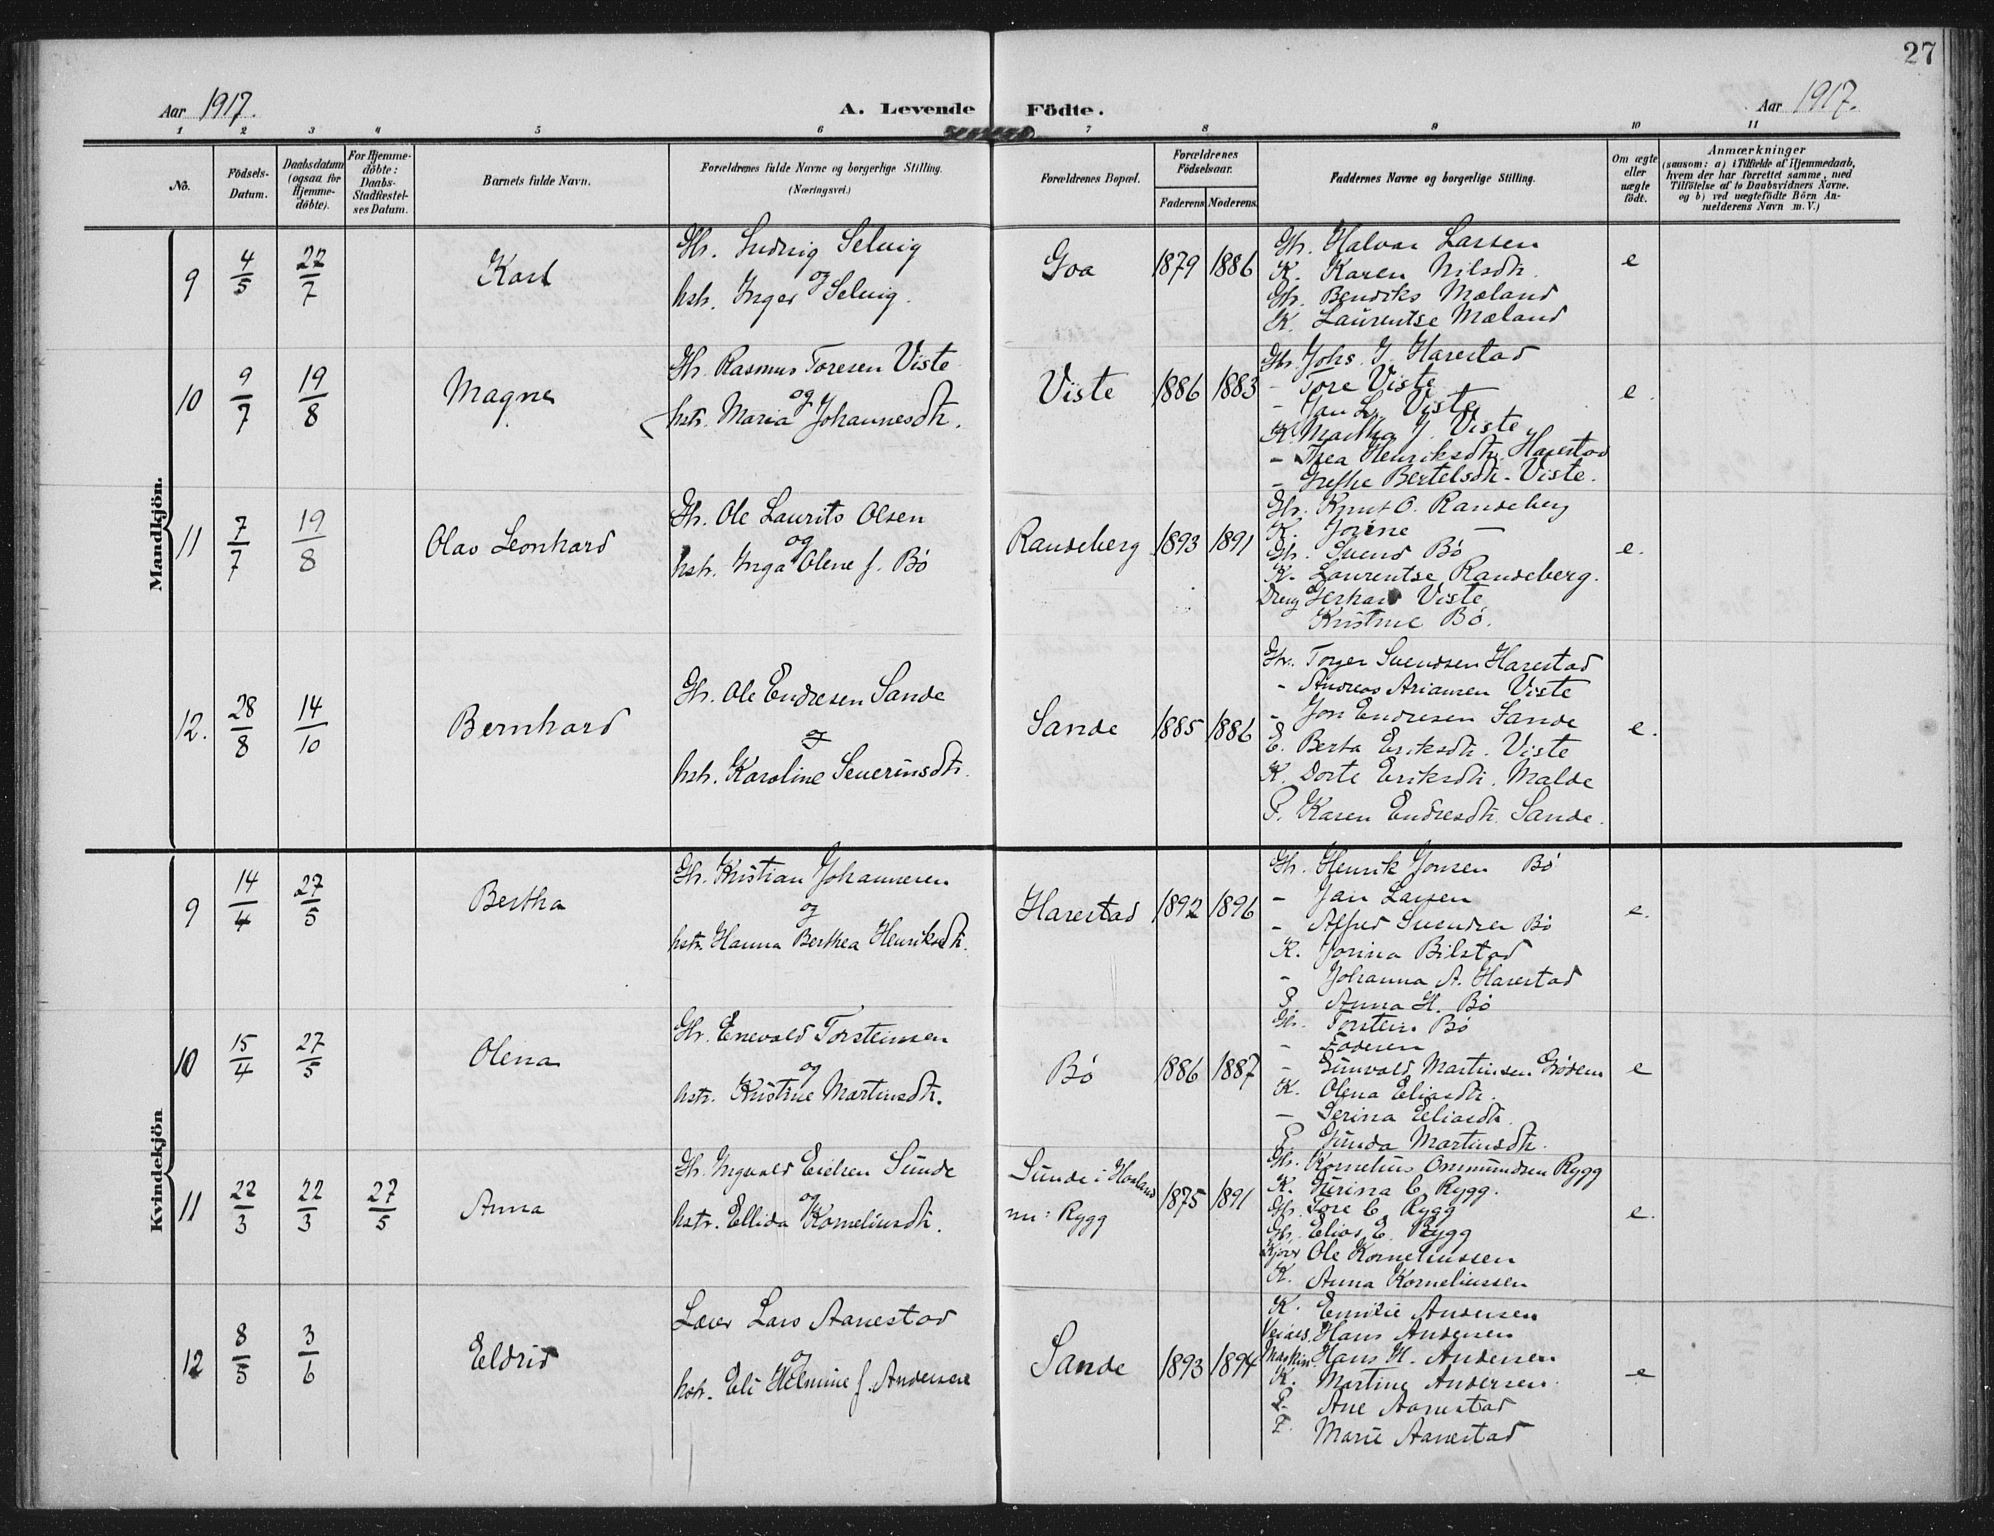 27
Aar 1917.
A. Levende Födte.
Aar 1917.
1 2 3 4 5 6 7 8 9 10 11
No.
Födsels-
Datum.
Daabsdatum
(ogsaa for
Hjemme-
döbte).
For Hjemme-
döbte:
Daabs-
Stadfæstel-
ses Datum.
Barnets fulde Navn.
Forældrenes fulde Navne og borgerlige Stilling.
(Næringsvei.)
Forældrenes Bopæl.
Forældrenes
Födselsaar.
Faderens. Moderens.
Faddernes Navne og borgerlige Stilling.
Om ægte
eller
uægte
födt.
Anmærkninger
(saasom: a) i Tilfælde af Hjemmedaab,
hvem der har forrettet samme, med
Tilföielse af to Daabsvidners Navne.
og b) ved uægtefödte Börn An-
melderens Navn m. V.)
Mandkjön.
9 4/5 22/7 Karl
Gh. Ludvig Selvig
og
hstr. Inger Selvig.
Goa 1879 1886
Gh. Halvar Larsen
K. Karen Nilsdtr.
Gh. Bendiks Mæland
K. Laurentse Mæland
e
10 9/7 19/8 Magne
Gh. Rasmus Toresen Viste
og
hstr. Maria Johannesdtr.
Viste 1886 1883
Gh. Johs. J. Harestad
- Tore Viste
- Jan L. Viste
K. Martha J. Viste
- Thea Henriksdtr. Harestad
- Grethe Bertelsdtr. Viste.
e.
11 7/7 19/8 Olav Leonhard
Gh. Ole Laurits Olsen
og
hstr. Inga Olene f. Bö
Randeberg 1893 1891
Gh. Knut O. Randeberg
K. Jorine —
Gh. Svend Bö
K. Laurentse Randeberg.
Dreng Gerhard Viste
Kristine Bö.
e.
12. 28/8 14/10 Bernhard
Gh. Ole Endresen Sande
og
hstr. Karoline Severinsdtr.
Sande 1885 1886
Gh. Torger Svendsen Harestad
- Andreas Viste
- Jon Endresen Sande
E. Berta Eriksdtr. Viste
K. Dorte Eriksdtr. Malde
P. Karen Endresdtr. Sande.
e.
Kvindekjön
9 14/4 27/5 Bertha
Gh. Kristian Johannesen
og
hstr. Hanna Berthea Henriksdtr.
Harestad 1892 1896
Gh. Henrik Jonsen Bö
- Jan Larsen
- Alfred Svendsen Bö
K. Jorina Bilstad
- Johanna A. Harestad
P. Anna H. Bö
e.
10 15/4 27/5 Olena
Gh. Enevald Torsteinsen
og
hstr. Kristine Martinsdtr.
Bö 1886 1887
Gh. Torstein Bö
- Faderen
- Gunvald Martinsen
K. Olena Eliasdtr.
- Serina Eliasdtr.
P. Gunda Martinsdtr.
e
11 22/3 22/3 27/5 Anna
Gh. Ingvald Eielsen Sunde
og
hstr. Ellida Korneliusdtr.
Sunde i Haaland
nu: Rygg
1875 1891
Gh. Kornelius Ommundsen Rygg
K. Serina C. Rygg.
Gh. Tore C. Rygg
Gh. Elias E. Rygg
Ole Korneliussen
K. Anna Korneliussen
e.
12 8/5 3/6 Eldrid
Lærer Lars Aanestad
og
hstr. Eli Helmine f. Andersen
Sande 1893 1894
K. Emilie Andersen
Hans Andersen
Maskin. Hans M. Andersen
K. Martine Andersen.
P. Ane Aanestad
P. Marie Aanestad
e